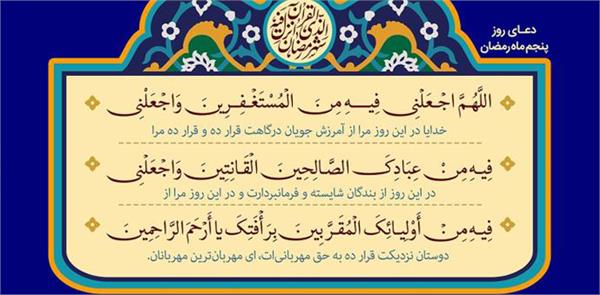 دعـای روز
پنجم ماه رمضان
شهر رمضان الذی أنزل فیه القرآن
اللَّهُمَّ اجْعَلْنِي فِیهِ مِنَ الْمُسْتَغْفِرِینَ وَاجْعَلْنِي
خدایا در این روز مرا از آمرزش جویان درگاهت قرار ده و قرار ده مرا
فِیهِ مِنْ عِبَادِکَ الصَّالِحِینَ الْقَانِتِینَ وَاجْعَلْنِي
در این روز از بندگان شایسته و فرمانبردارت و در این روز مرا از
فِیهِ مِنْ أَوْلِیَائِکَ الْمُقَرَّبِینَ بِرَأْفَتِکَ یَا أَرْحَمَ الرَّاحِمِینَ
دوستان نزدیکت قرار ده به حق مهربانی‌ات، ای مهربان‌ترین مهربانان.